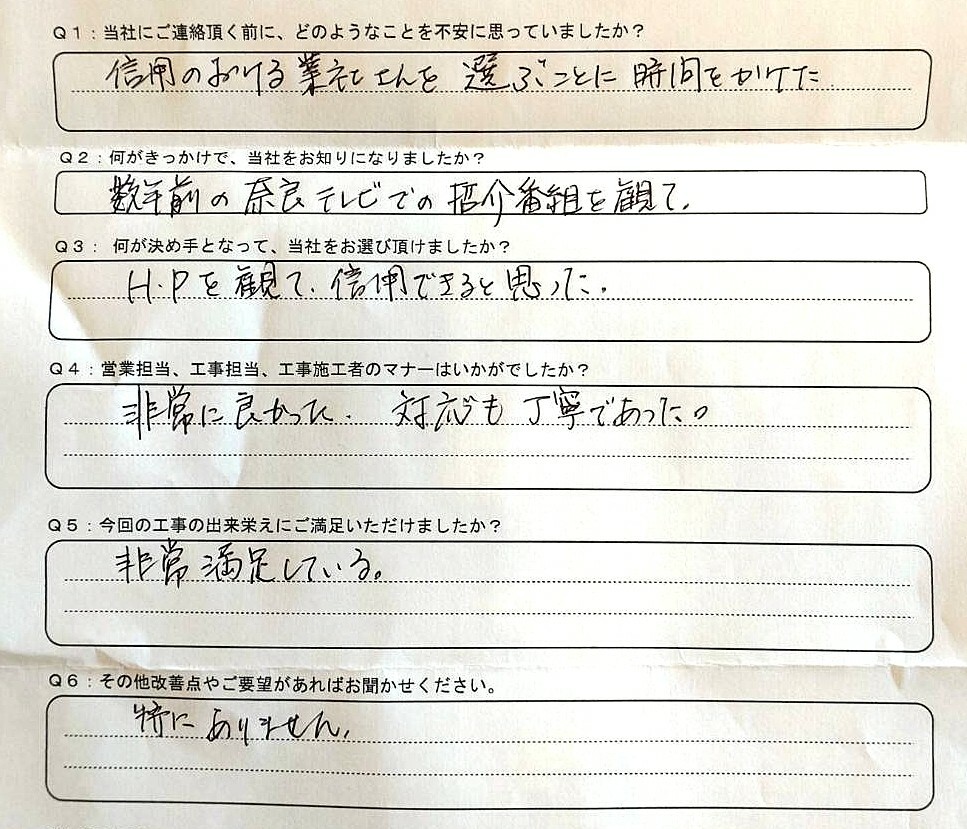 Q1：当社にご連絡頂く前に、どのようなことを不安に思っていましたか？
信用のおける業社さんを選ぶことに時間をかけた
Q2：何がきっかけで、当社をお知りになりましたか？
数年前の奈良テレビでの紹介番組を観て、
Q3： 何が決め手となって、当社をお選び頂けましたか？
H.Pを観て、信用できると思った。
Q4：営業担当、工事担当、工事施工者のマナーはいかがでしたか？
非常に良かった. 対応も丁寧であった。
Q5：今回の工事の出来栄えにご満足いただけましたか？
非常満足している。
Q6：その他改善点やご要望があればお聞かせください。
特にありません、